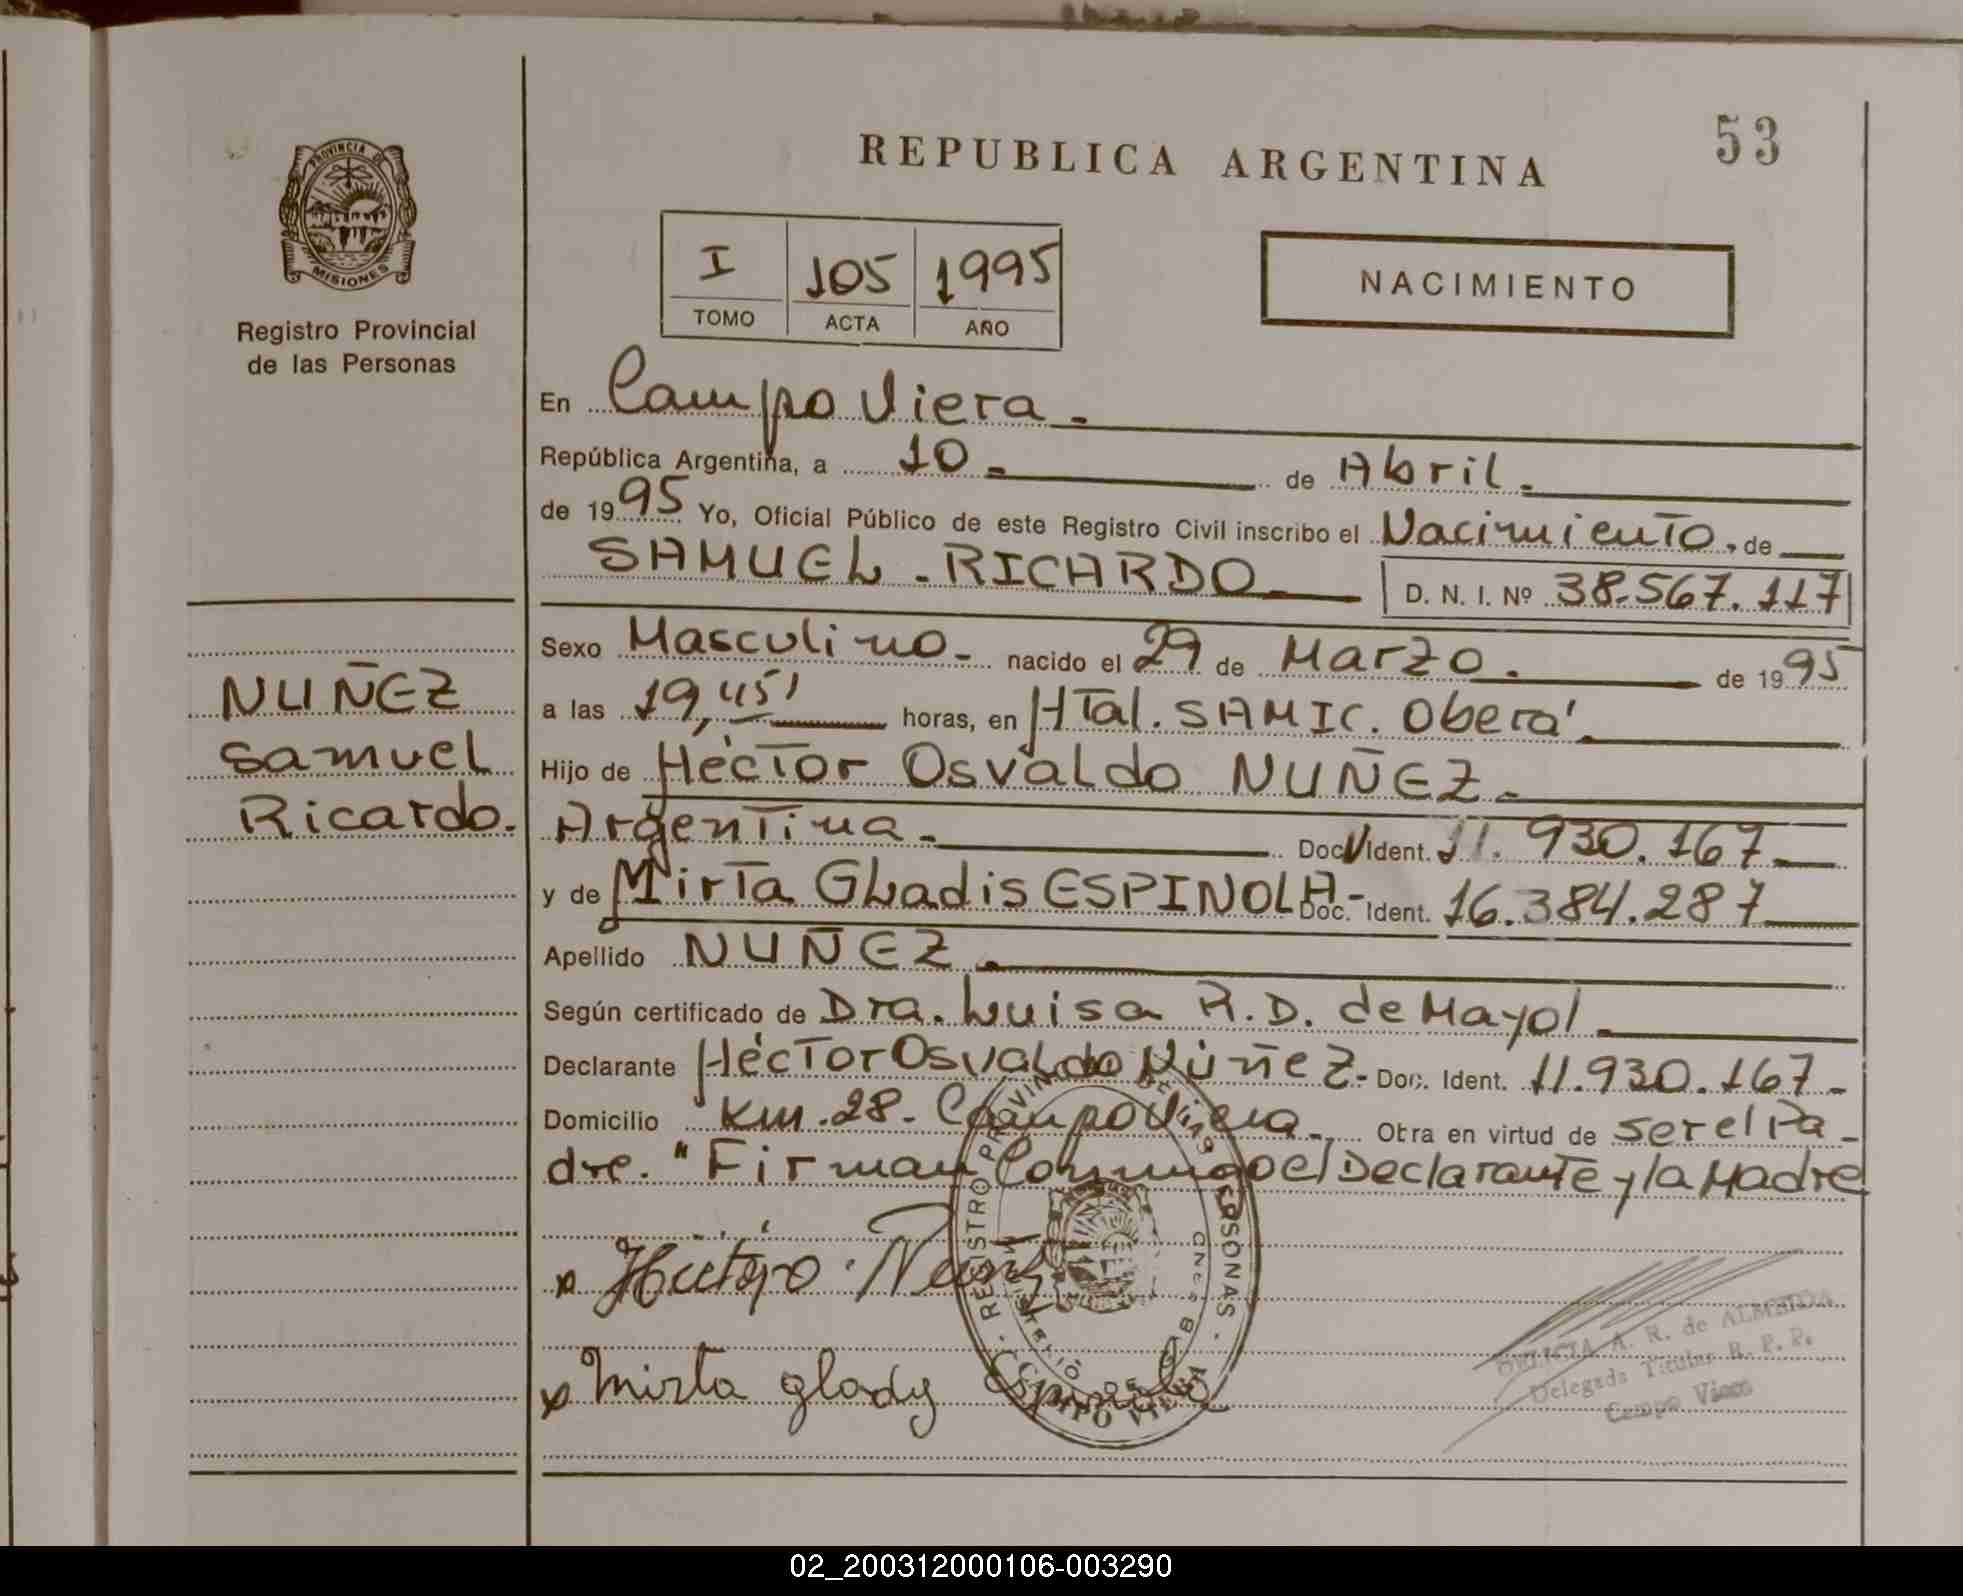 53
REPUBLICA ARGENTINA
PROVINCIA DE
MISIONES
Registro Provincial
de las Personas
I 105 1995
TOMO ACTA AÑO
NACIMIENTO
En Campo Viera.
República Argentina, a 10 de Abril.
de 1995 Yo, Oficial Público de este Registro Civil inscribo el Nacimiento, de
SAMUEL. RICARDO D. N. I. Nº 38.567.117
NUÑEZ
Samuel
Ricardo.
Sexo Masculino. nacido el 29 de Marzo. de 1995
a las 19,45' horas, en HTal. SAMIC. Oberá.
Hijo de Héctor Osvaldo NUÑEZ.
Argentina. Doc. Ident. 11.930.167
y de Mirta Gladis ESPINOLA- Doc. Ident. 16.384.287
Apellido NUÑEZ.
Según certificado de Dra. Luisa R.D. de Mayol.
Declarante Héctor Osvaldo Núñez- Doc. Ident. 11.930.167-
Domicilio Km. 28. Campo Viera. Obra en virtud de ser el Pa-
dre. "Firman Conmigo el Declarante y la Madre
x Nuñez
x Mirta glady Espinola
DELICIA A. R. de ALMEIDA
Delegada Titular R. P. P.
Campo Viera
02_200312000106-003290